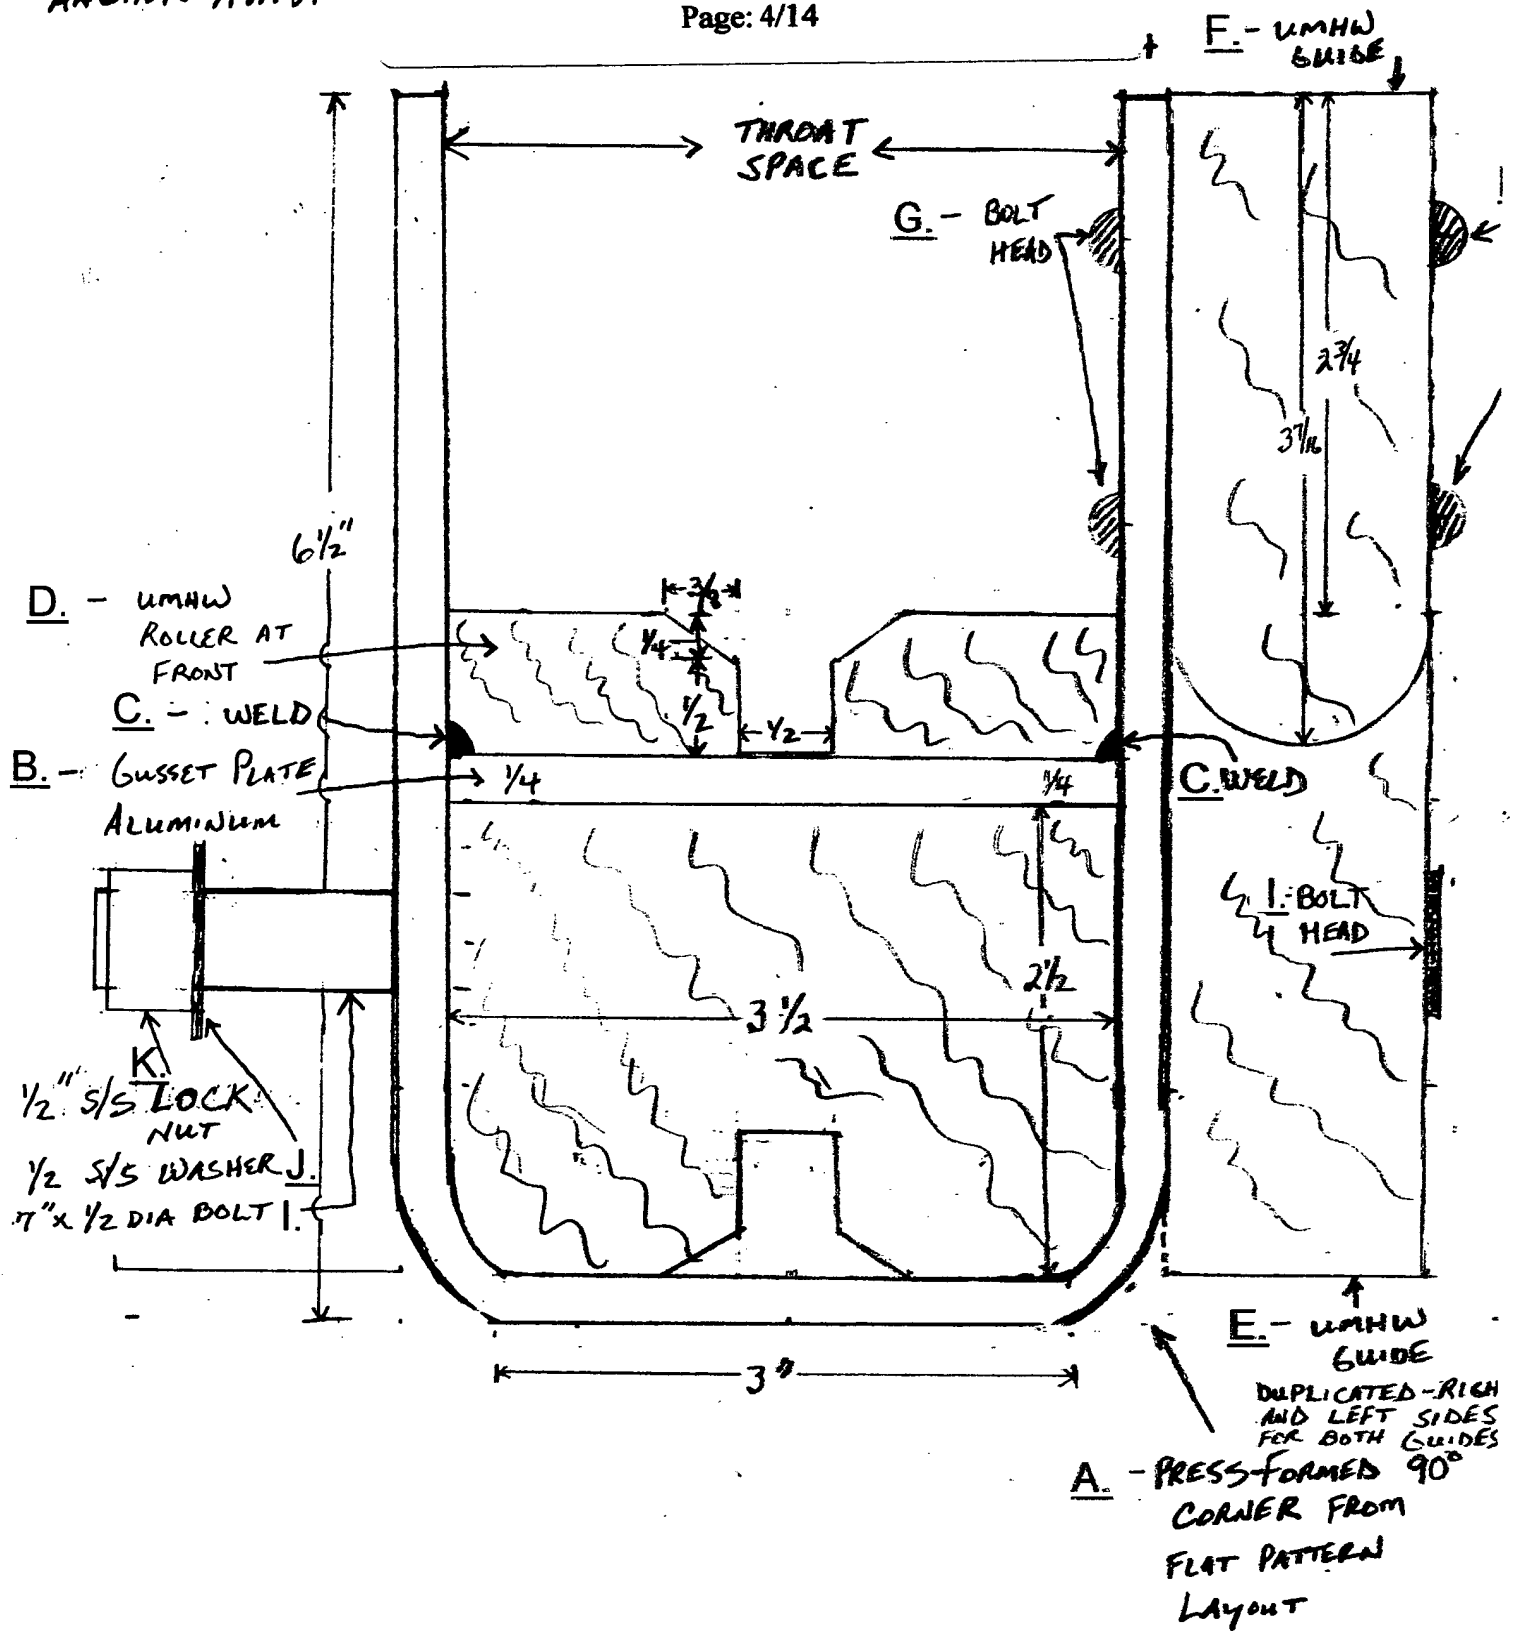 Page: 4/14
F. - UMHW
GUIDE
THROAT
SPACE
G. - BOLT
HEAD
2 3/4
3 7/16
6 1/2"
D. - UMHW
ROLLER AT
FRONT
3/8
1/4
1/2
1/2
C. - WELD
B. - GUSSET PLATE
ALUMINUM
1/4
1/4
C. WELD
I. - BOLT
HEAD
2 1/2
3 1/2
K.
1/2" S/S LOCK
NUT
1/2 S/S WASHER J.
7" x 1/2 DIA BOLT I.
3"
E. - UMHW
GUIDE
DUPLICATED - RIGH
AND LEFT SIDES
FOR BOTH GUIDES
A. - PRESS-FORMED 90°
CORNER FROM
FLAT PATTERN
LAYOUT